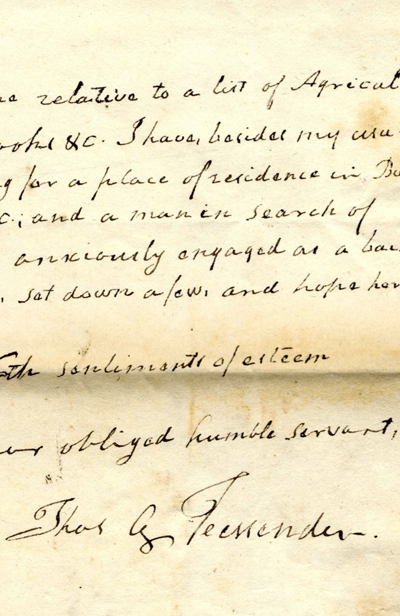 me relative to a list of Agricul
ooks &c. I have, besides my usu
g for a place of residence in B
c., and a man in search of
anxiously engaged as a ba
set down a few, and hope her
th sentiments of esteem
our obliged humble servant,
Thos G Feessenden.